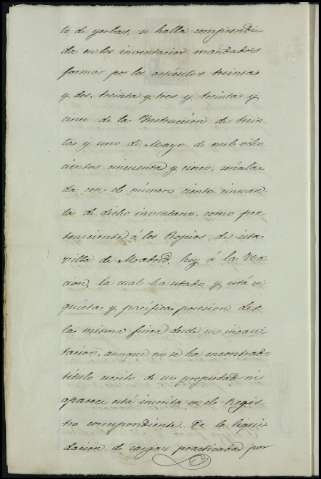 to de yerbas, se halla comprendi-
da en los inventarios mandados
formar por los artículos treinta
y dos, treinta y tres y treinta y
cinco de la Instruccion de trein-
ta y uno de Mayo de mil ocho-
cientos cincuenta y cinco, señala-
da con el número ciento
de dicho inventario, como per-
teneciente á los Propios de esta
villa de Madrid, hoy á la Na-
cion, la cual ha estado y está en
quieta y pacífica posesion de
la misma finca desde su incau-
tacion, aunque no se ha encontrado
título escrito de su propiedad ni
aparece esté inscrita en el Regis-
tro correspondiente. De la liqui-
dacion de cargas practicada por